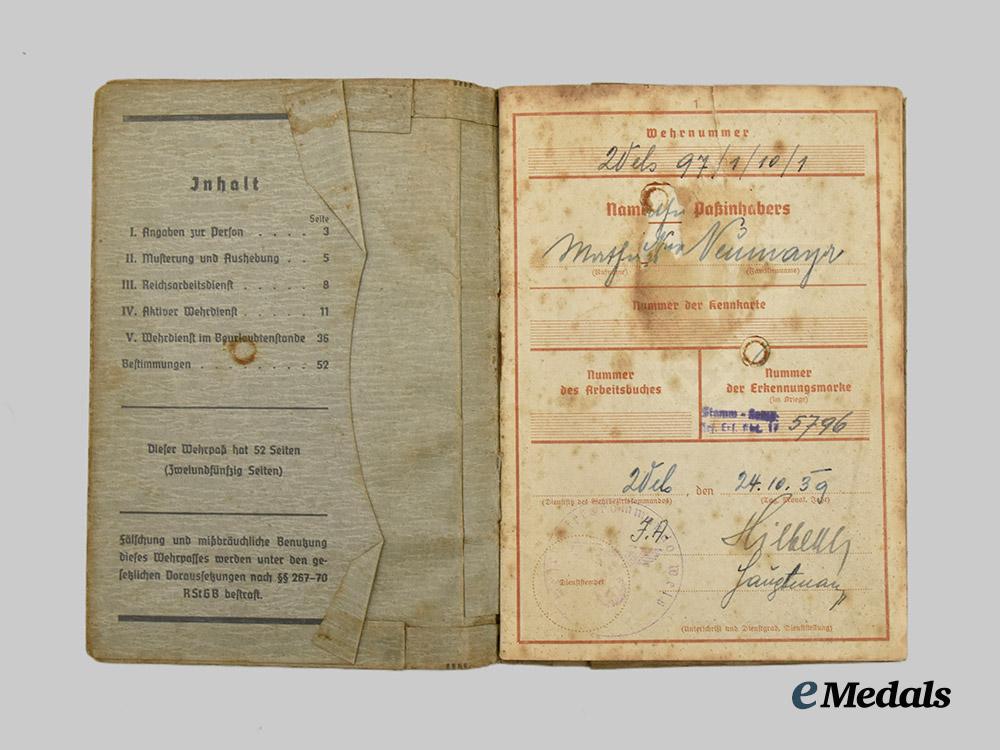 Inhalt
Seite
I. Angaben zur Person . . . . 3
II. Musterung und Aushebung . . 5
III. Reichsarbeitsdienst . . . . 8
IV. Aktiver Wehrdienst . . . . 11
V. Wehrdienst im Beurlaubtenstande 36
Bestimmungen . . . . . . . . 52
Dieser Wehrpaß hat 52 Seiten
(Zweiundfünfzig Seiten)
Fälschung und mißbräuchliche Benutzung
dieses Wehrpasses werden unter den ge-
setzlichen Voraussetzungen nach §§ 267–70
RStGB bestraft.
1
Wehrnummer
Wels 97/1/10/1
Name des Paßinhabers
Neumayr
(Rufname) (Familienname)
Nummer der Kennkarte
Nummer
des Arbeitsbuches
Nummer
der Erkennungsmarke
(im Kriege)
Stamm - Komp.
17 5796
Wels, den 24.10.39
(Dienstsitz des Wehrbezirkskommandos) (Tag, Monat, Jahr)
J.A.
Hauptmann
Dienststempel
(Unterschrift und Dienstgrad, Dienststellung)
eMedals